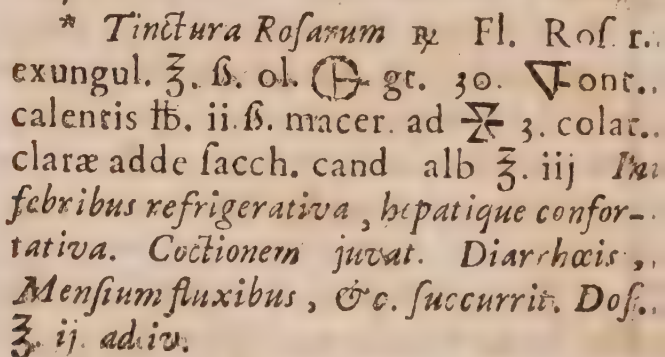 * Tinctura Roſarum ℞ Fl. Roſ r.
exungul. ℥. ß. ol. 🜖 gt. 30. 🜄 Font.
calentis ℔. ii.ß. macer. ad ⧖ 3. colat.
claræ adde ſacch. cand alb ℥. iij In
febribus refrigerativa, hepatique confor-
tativa. Coctionem juvat. Diarrhœis,
Menſium fluxibus, &c. ſuccurrit. Doſ.
℥. ij. ad iv.